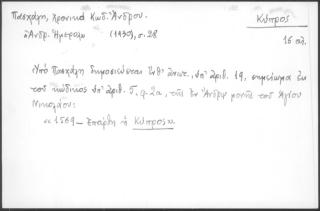 Πασχάλη, Χρονικά Κωδ. Ἄνδρου.
Κύπρος
Ἀνδρ. Ἡμερολ. (1930), σ. 28
16 αἰ.
Ὑπὸ Πασχάλη δημοσιεύεται ὑπ' ἀριθ. 19, σημείωμα ἐκ
τοῦ κώδικος ὑπ' ἀριθ. 5, φ. 2α, τῆς ἐν Ἄνδρῳ μονῆς τοῦ Ἁγίου
Νικολάου:
« 1569 – Ἐπάρθη ἡ Κύπρος».